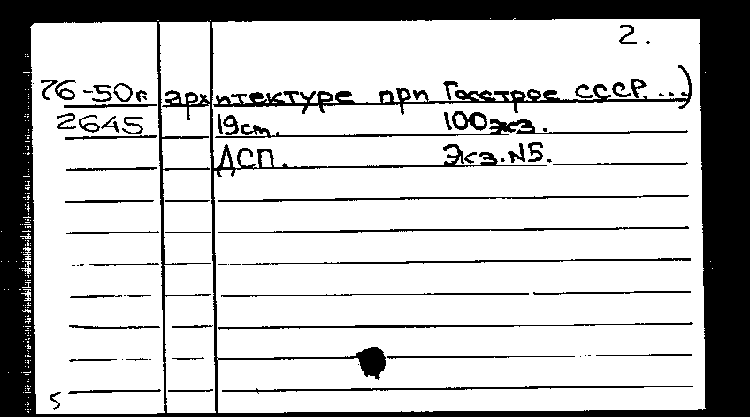 2.
76-50г архитектуре при Госстрое СССР...)
2645 19см. 100экз.
ДСП. Экз.№5.
5